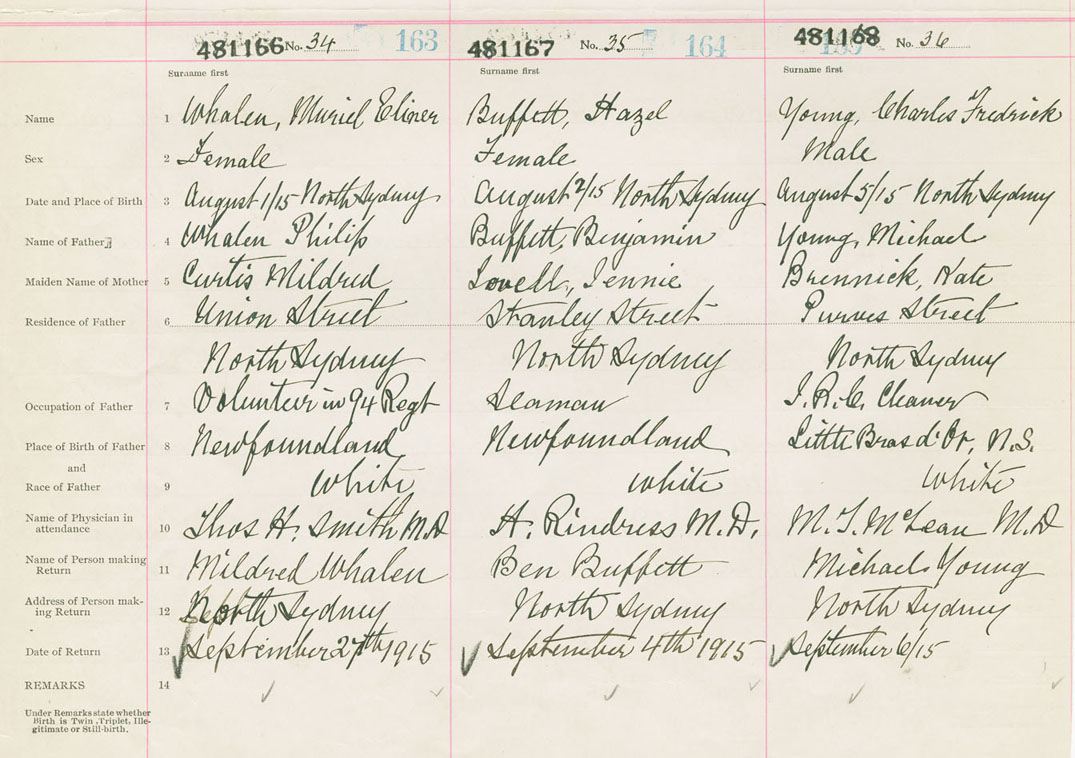 481166 No. 34 163 481167 No. 35 164 481168 No. 36
Surname first Surname first Surname first
Name 1 Whalen, Muriel Elinor Buffett, Hazel Young, Charles Fredrick
Sex 2 Female Female Male
Date and Place of Birth 3 August 1/15 North Sydney August 2/15 North Sydney August 5/15 North Sydney
Name of Father 4 Whalen Philip Buffett, Benjamin Young, Michael
Maiden Name of Mother 5 Curtis Mildred Lovell, Jennie Brennick, Kate
Residence of Father 6 Union Street Stanley Street Purves Street
North Sydney North Sydney North Sydney
Occupation of Father 7 Volunteer in 94 Regt Seaman I.R.C. Cleaner
Place of Birth of Father 8 Newfoundland Newfoundland Little Bras d'Or, N.S.
and
Race of Father 9 White White White
Name of Physician in
attendance 10 Thos H. Smith M.D H. Rindress M.D. M.T. McLean M.D
Name of Person making
Return 11 Mildred Whalen Ben Buffett Michael Young
Address of Person mak-
ing Return 12 North Sydney North Sydney North Sydney
Date of Return 13 September 27th 1915 September 4th 1915 September 6/15
REMARKS 14
Under Remarks state whether
Birth is Twin, Triplet, Ille-
gitimate or Still-birth.